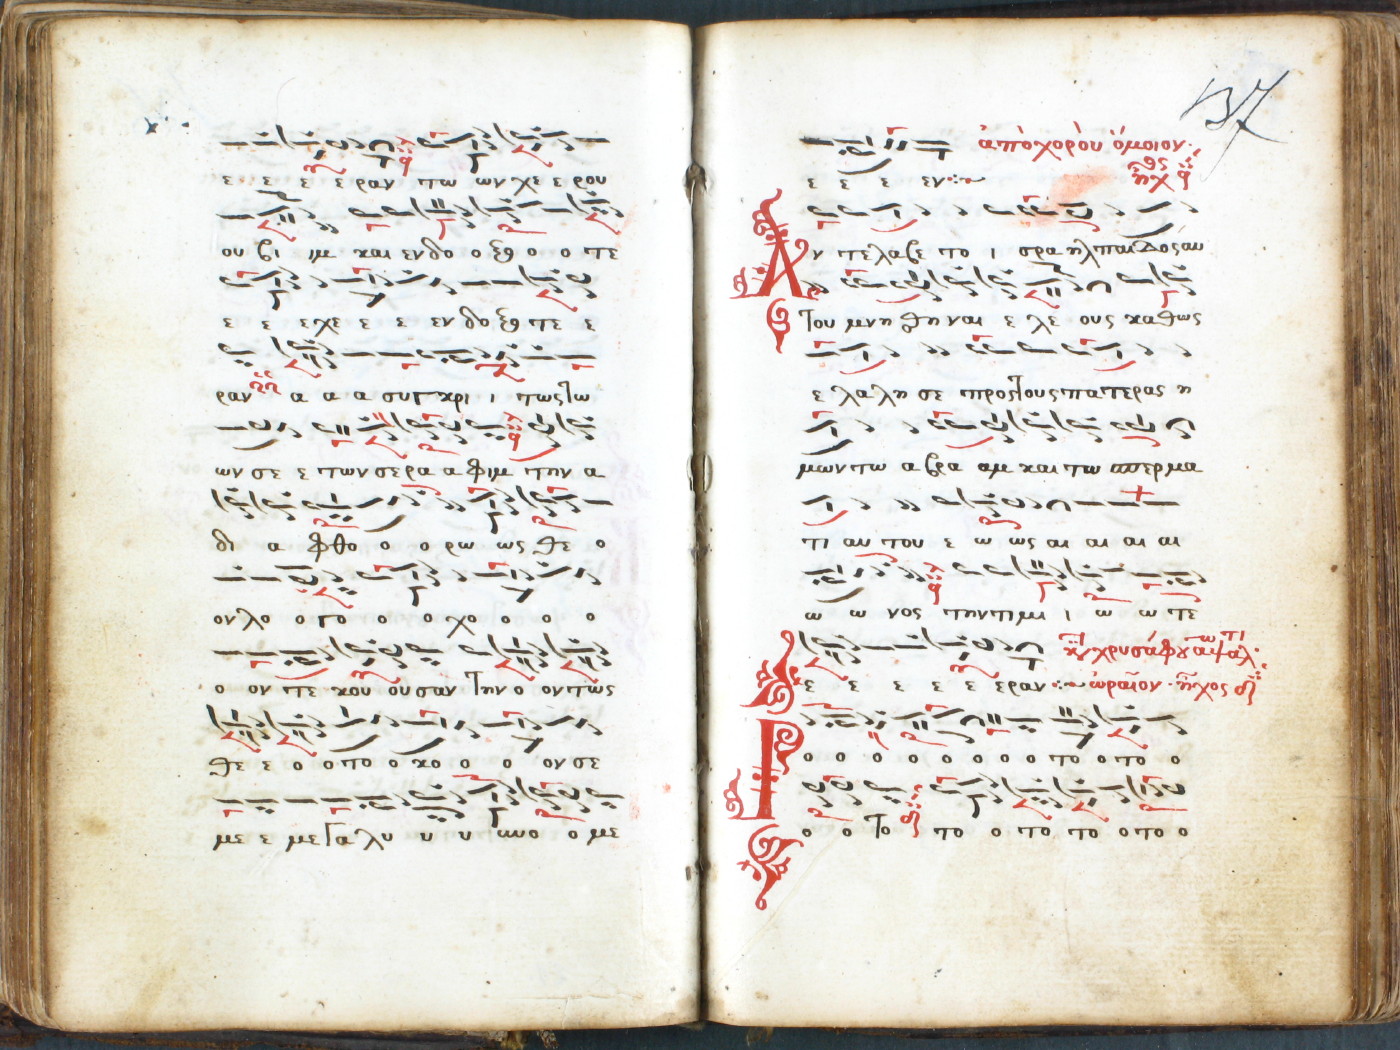 ε ε ε ε ραν τω ων χε ε ρου
ου βι ιμ και εν δο ο ξο ο ο τε
ε ε ε χε ε ε εν δο ξο τε ε
ραν α α α συγ κρι ι τως τω
ων σε ε των σε ρα α φιμ την α
δι α φθο ο ο ρω ως θε ο
ον λο ο γο ο ο χο ο ο ο
ο ον τε κου ου σαν την ο ον τως
θε ε ο ο το ο κο ο ο ον σε
με ε με γα λυ υ υ υνο ο με
137
ἀπὸ χοροῦ ὅμοιον
ε ε ε εν ἦχ
Αν τε λα βε το ι σρα ηλ παι δος αυ
του μνη θη ναι ε λε ους καθως
ε λα λη σε προς τους πα τε ρας η
μων τω α βρα αμ και τω σπερ μα
τι αυ του ε ω ως αι αι αι αι
ω ω νος την τι μι ι ω ω τε
χρυσάφου
ε ε ε ε ε ε ραν ὡραῖον ἦχος
ο ο ο ο ο ο ο ο ο το ο το ο
ο ο το το ο το το ο το ο